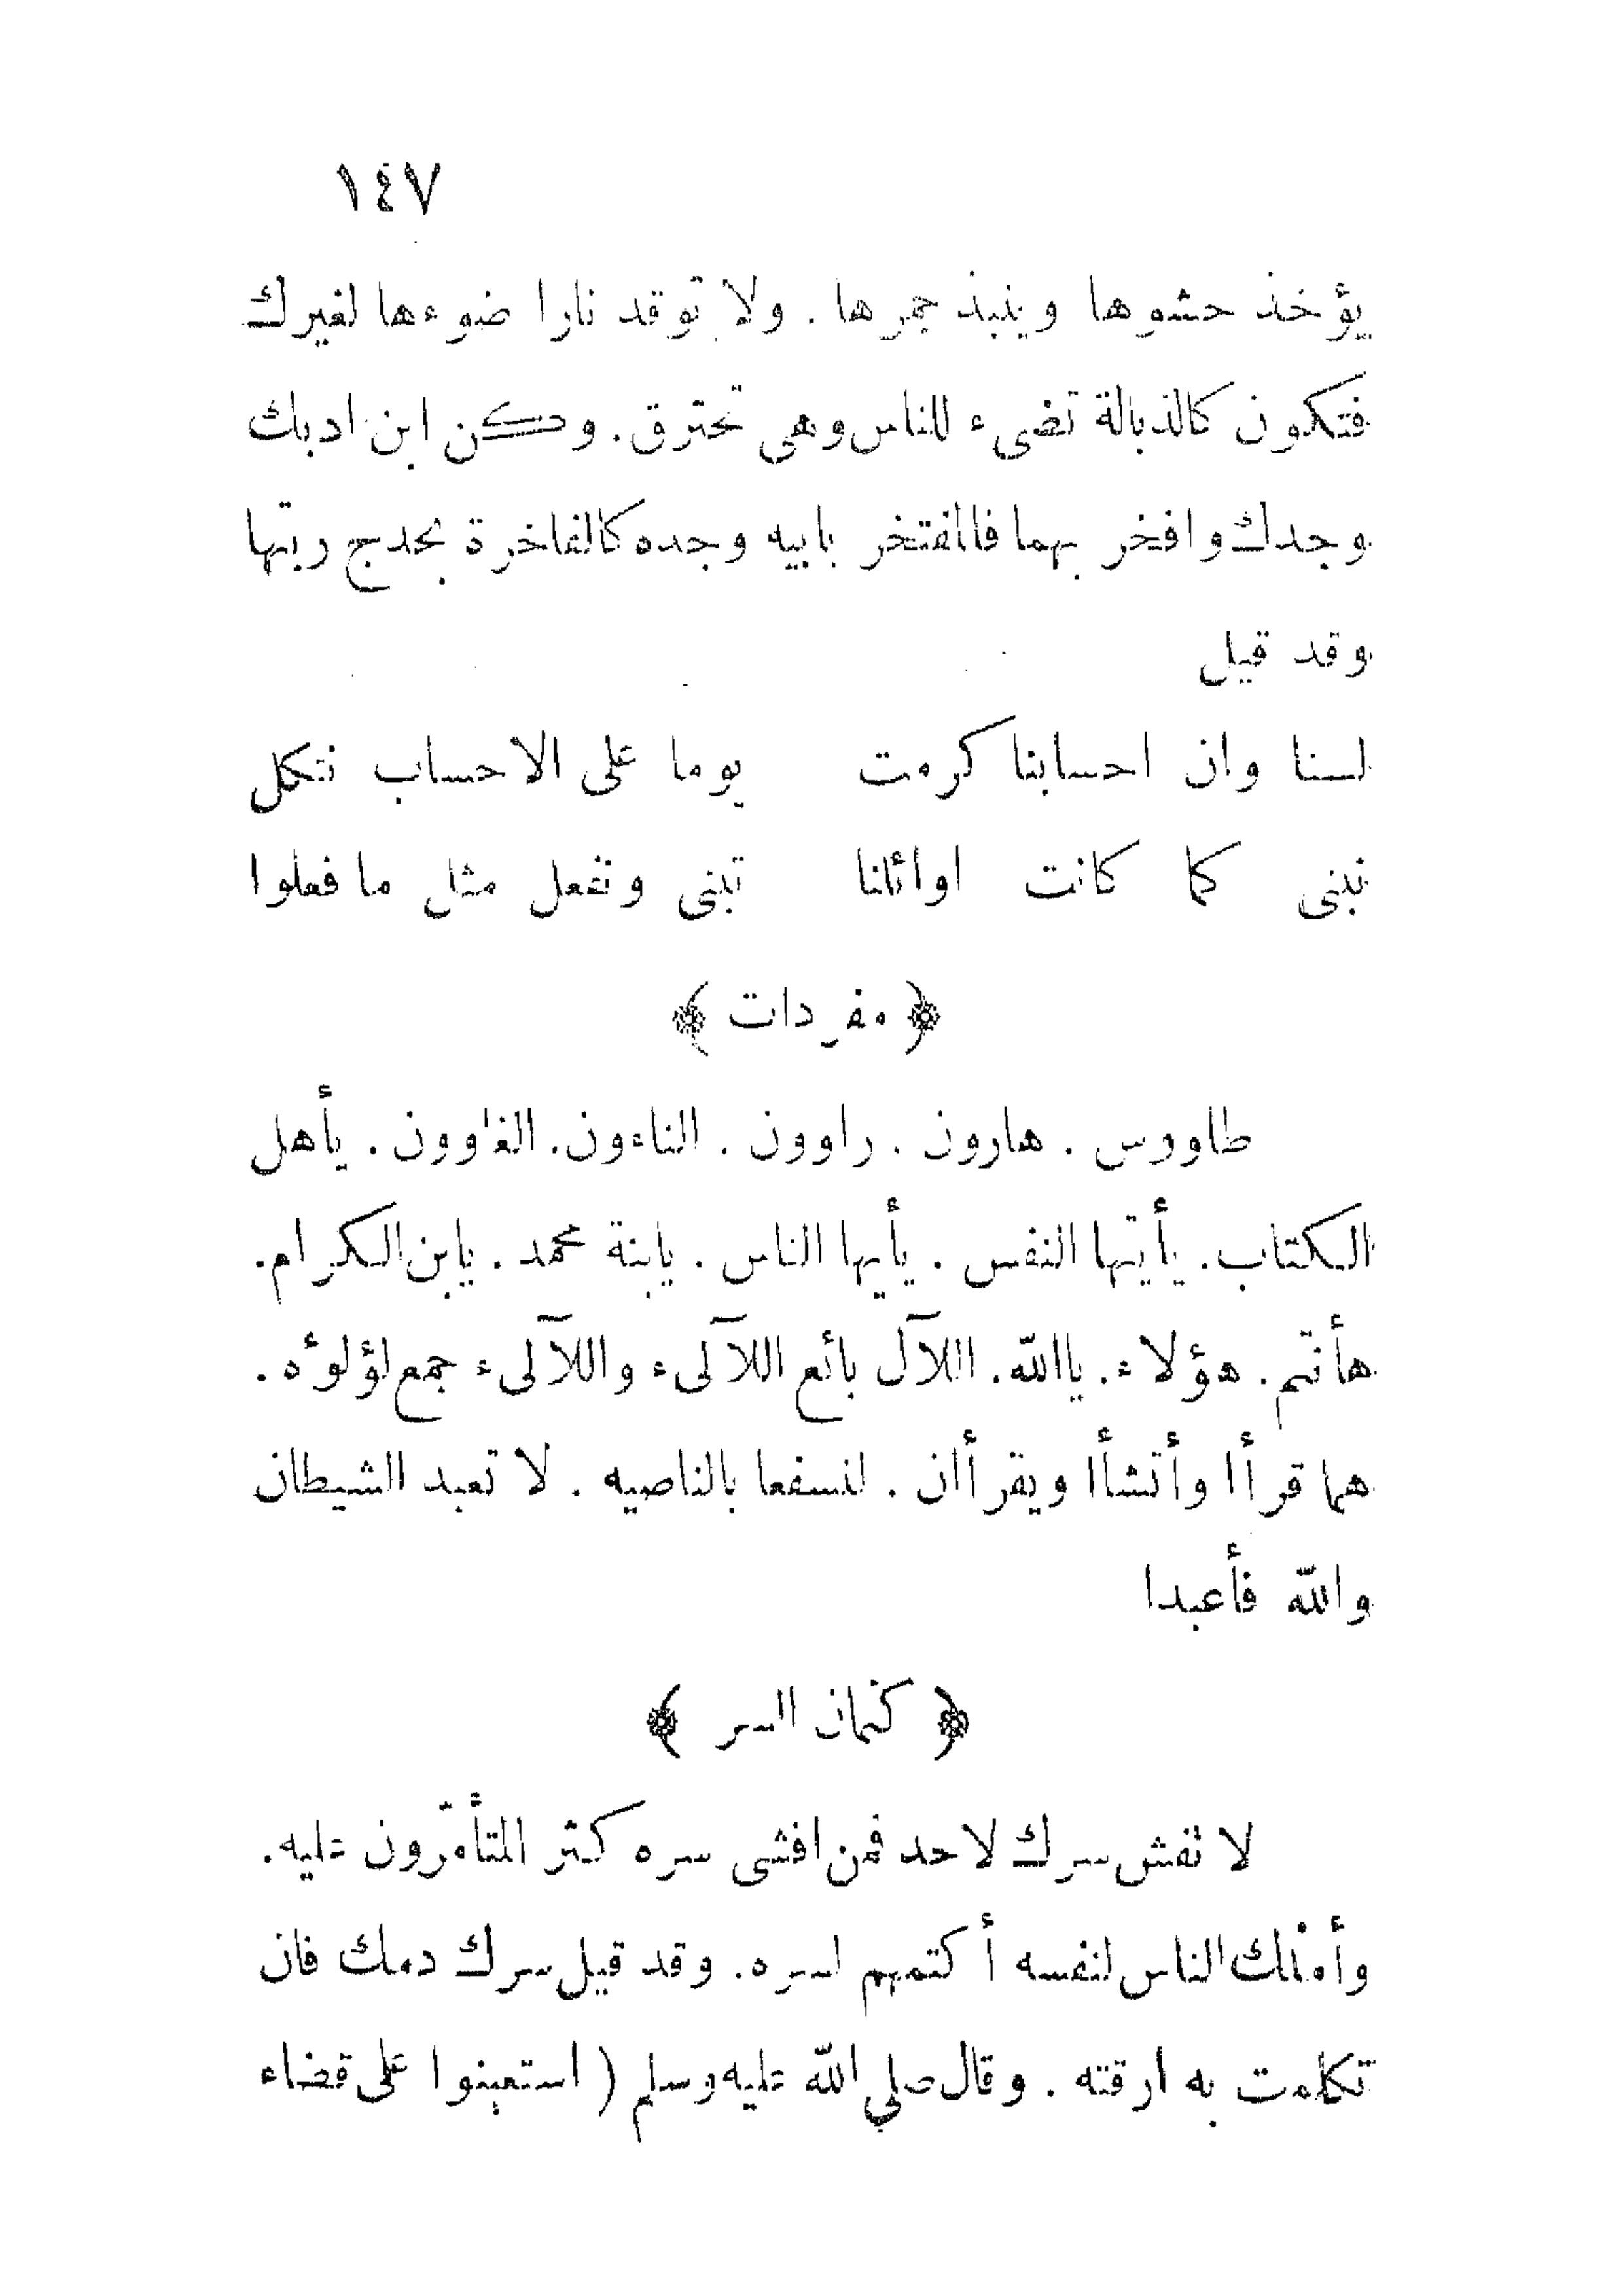 ١٤٧
يؤخذ حشوها وينبذ جمرها . ولا توقد نارا ضوءها لغيرك
فتكون كالذبالة تضىء للناس وهى تحترق . وكن ابن ادبك
وجدك وافخر بهما فالمفتخر بابيه وجده كالفاخرة بحدج ربتها
وقد قيل
لسنا وان احسابنا كرمت يوما على الاحساب نتكل
نبنى كما كانت اوائلنا تبنى ونفعل مثل ما فعلوا
﴿ مفردات ﴾
طاووس . هارون . راوون . الناءون . الغاوون . يأهل
الكتاب . يأيتها النفس . يأيها الناس . يابنة محمد . يابن الكرام .
هأنتم . هؤلاء . ياالله . اللآل بائع اللآلىء واللآلىء جمع لؤلوه .
هما قرأا وأنشأا ويقرأان . لنسفعا بالناصيه . لا تعبد الشيطان
والله فأعبدا
﴿ كتمان السر ﴾
لا تفش سرك لاحد فمن افشى سره كثر المتأمّرون عليه .
وأملك الناس لنفسه أكتمهم لسره . وقد قيل سرك دمك فان
تكلمت به ارقته . وقال صلي الله عليه وسلم ( استعينوا على قضاء